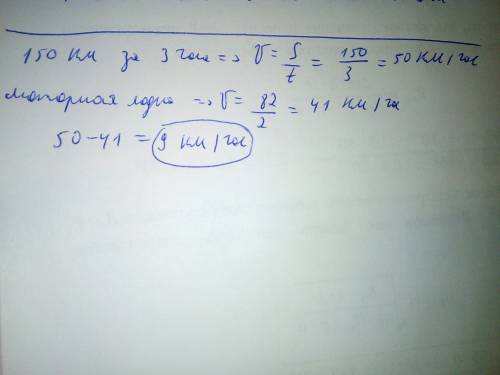 150 км за 3 часа => V = S/t = 150/3 = 50 км/час
моторная лодка => V = 82/2 = 41 км/час
50-41 = 9 км/час